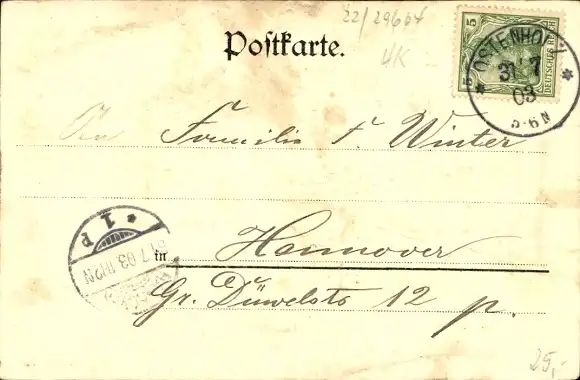 22/29664
Postkarte.
4K
5
DEUTSCHES REICH
OSTENHOLZ
31 7
03
5-6 N
An Familie F. Winter
in Hannover
Gr. Düwelstr 12 p.
1 P
31 7.03. 11-12 N
25,-